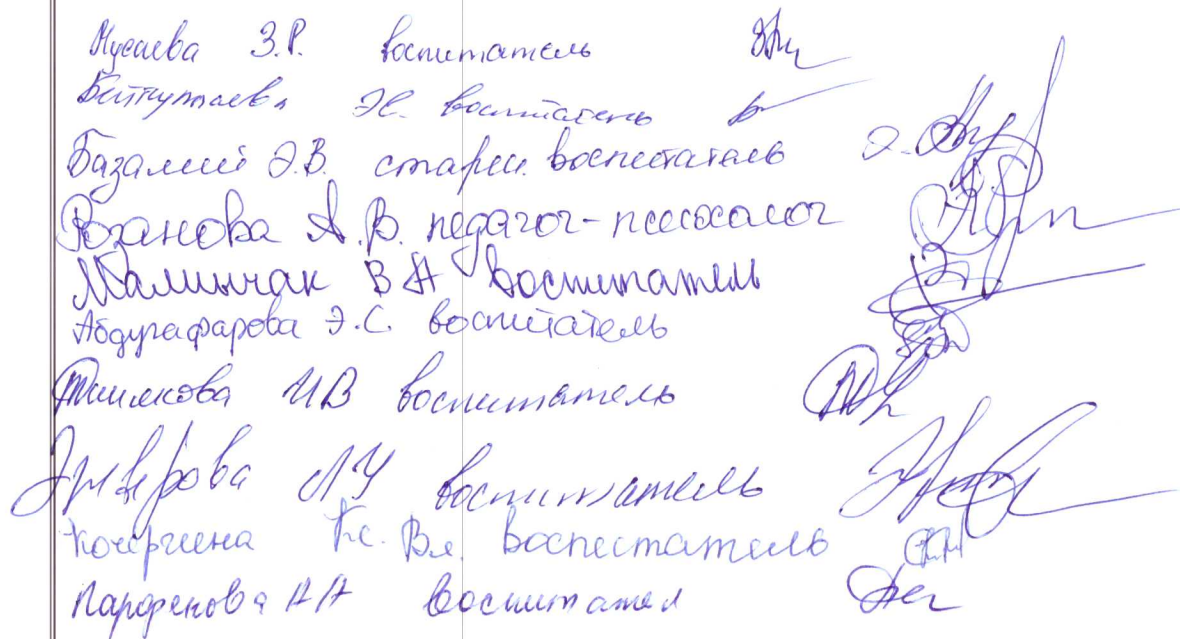 Мусаева З.Р. воспитатель
воспитатель
Базалий Э.В. старш. воспитатель
Розанова А.В. педагог-психолог
Малинчак В А воспитатель
Абдулгафарова Э.С. воспитатель
Тишкова И В воспитатель
Л У воспитатель
Кочергина Кс. Вл. воспитатель
Парфенова А А воспитател